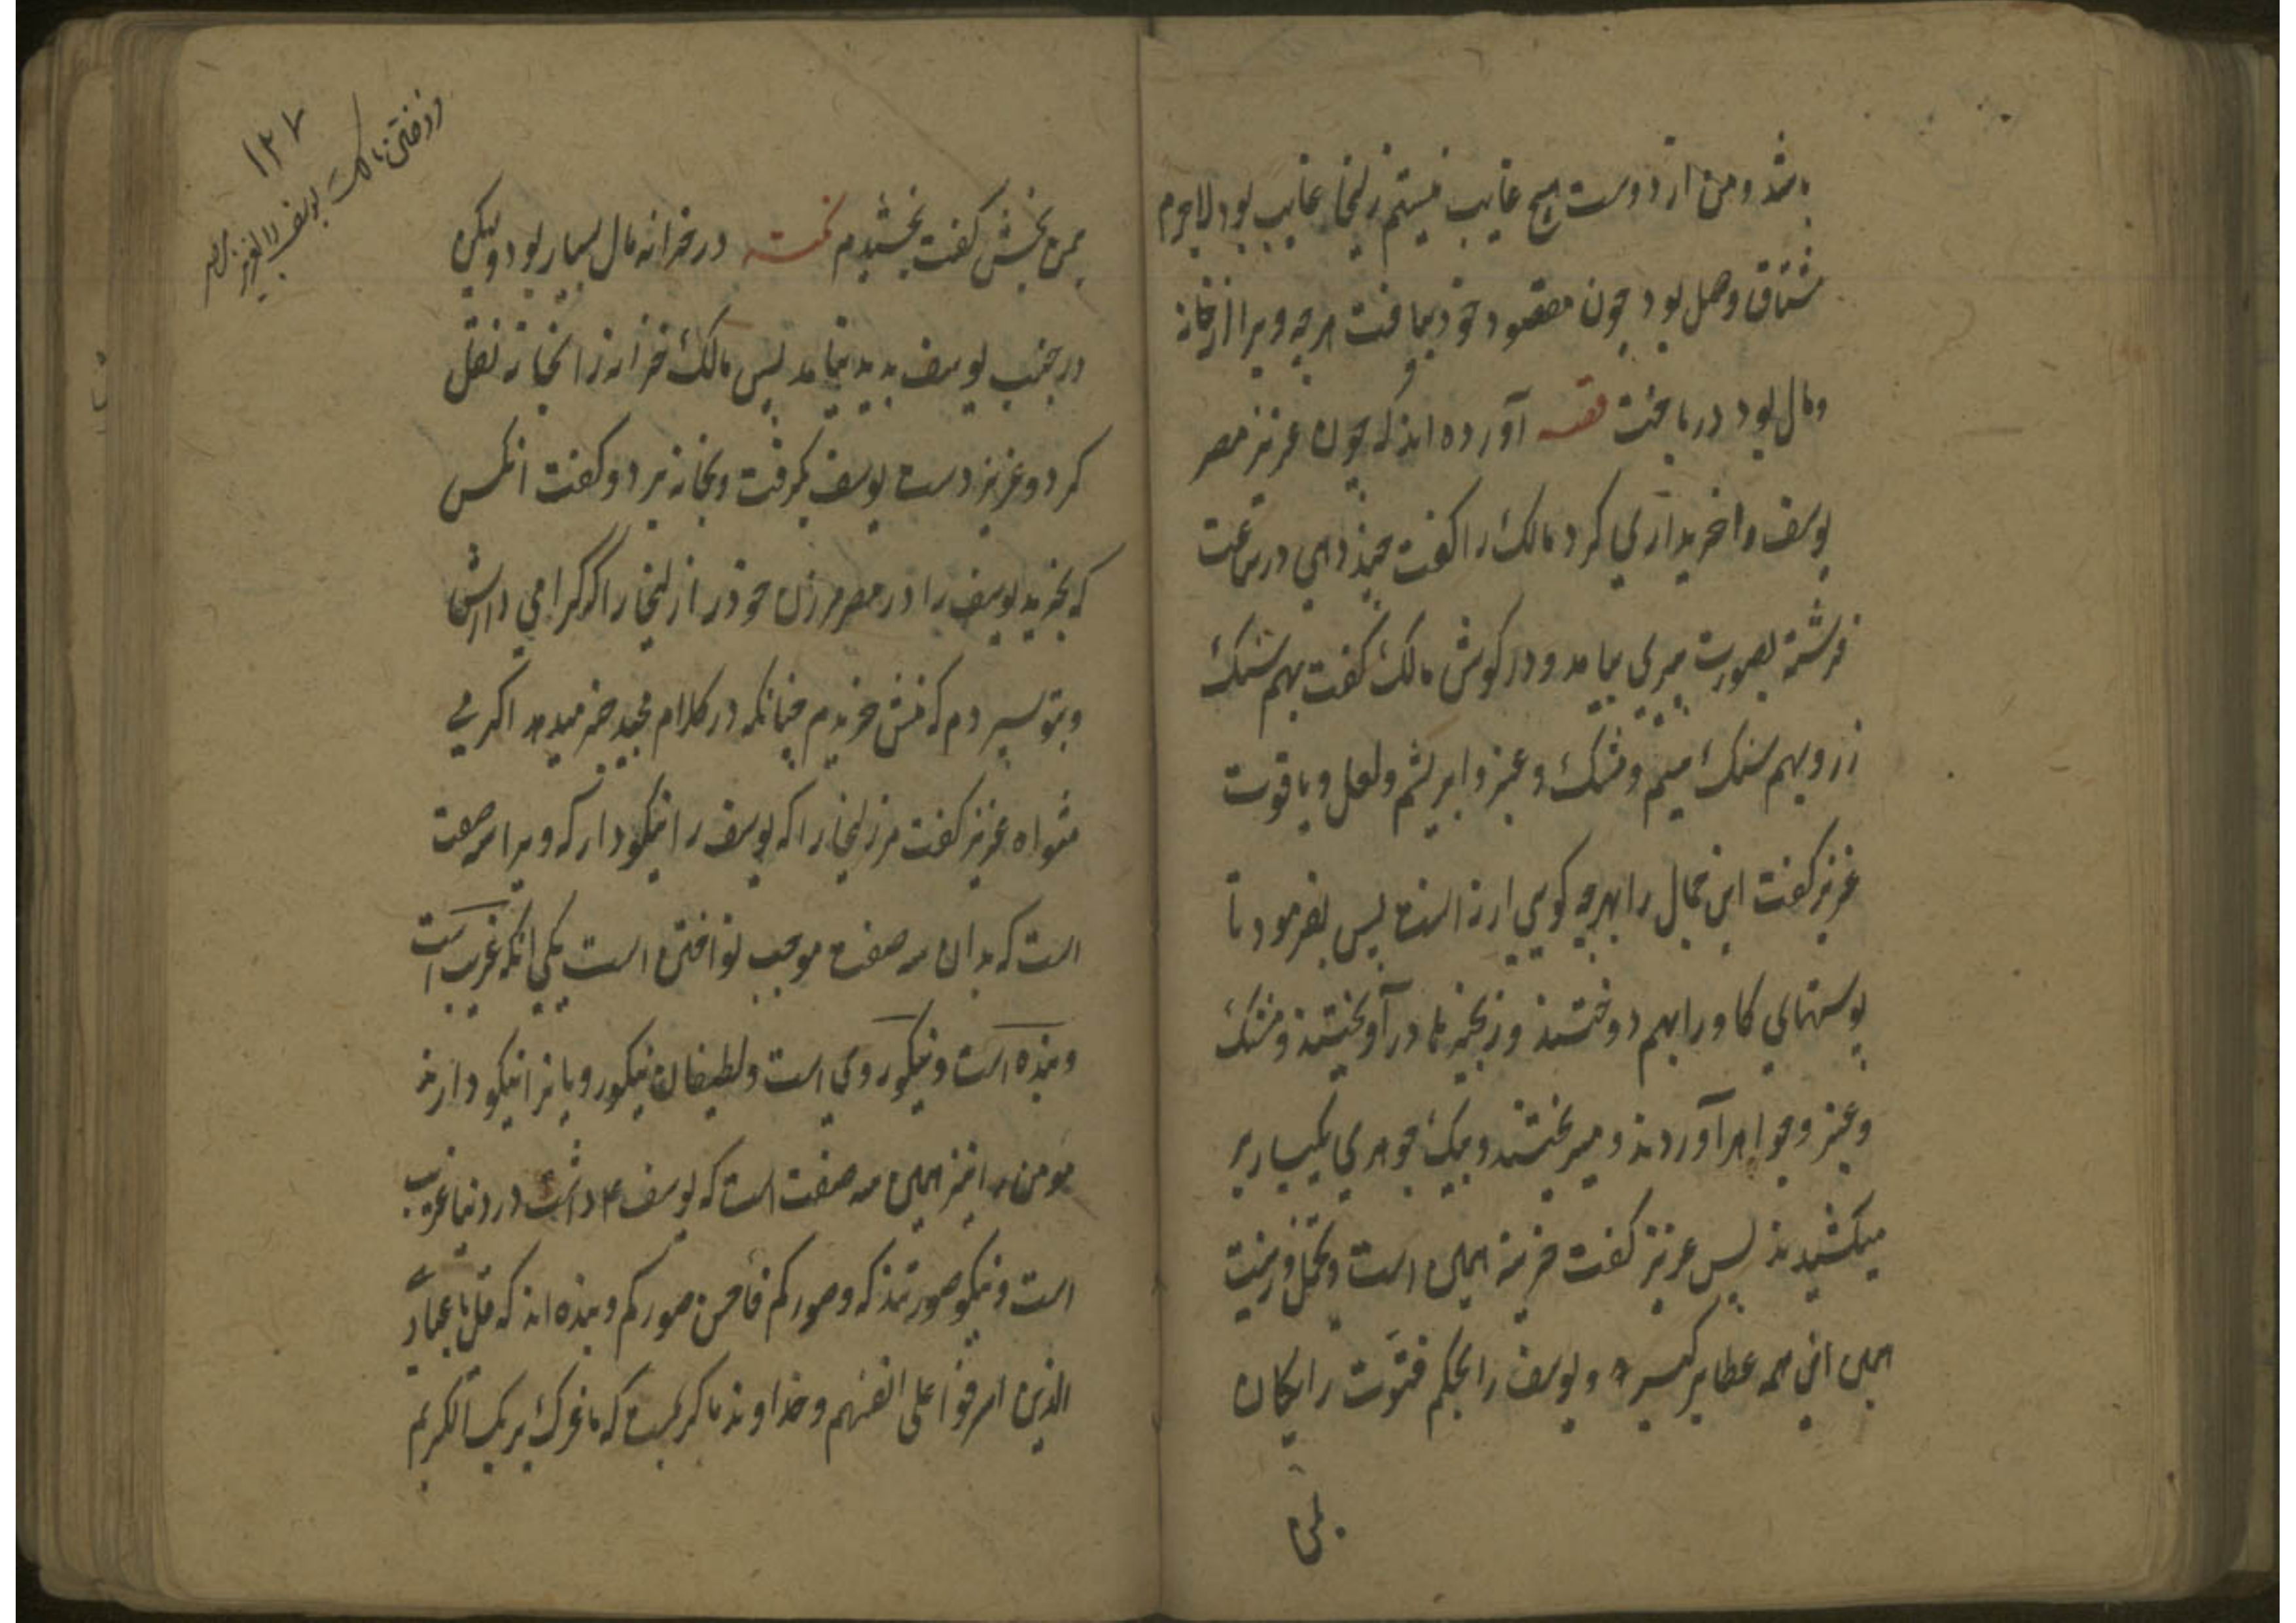 باشد و من از دوست هیچ غایب نیستم زلیخا غایب بود لاجرم
مشتاق وصل بود چون مقصود خود بیافت هرچه ویرا از خانه
و مال بود درباخت قصه آورده اند که چون عزیز مصر
یوسف را خریداری کرد مالک را گفت چند دهی در ساعت
فرشتهٔ بصورت پیری بیامد و در گوش مالک گفت بهم سنگ
زر و بهم سنگ سیم و مشک و عنبر و ابریشم و لعل و یاقوت
عزیز گفت این جمال را بهرچه گویی ارزانست پس بفرمود تا
پوستهای گاو را بهم دوختند و زنجیرها درآویختند و مشک
و عنبر و جواهر آوردند و میریختند و بیک جوهری یکبار بر
میکشیدند پس عزیز گفت خزینه همین است و تجمل و زینت
همین این همه عطا برگیر و یوسف را بحکم فتوت رایگان
بمن
۱۲۷
فروختن مالک یوسف را بعزیز مصر
بمن بخش گفت بخشیدم نکته در خزانه مال بسیار بود و لیکن
در جنب یوسف پدید نیامد پس مالک خزانه را بخانه نقل
کرد و عزیز دست یوسف بگرفت و بخانه برد و گفت انکس
که بخرید یوسف را در مصر مر زن خود را زلیخا را که گرامی دارش
و بتو سپردم که منش خریدم چنانکه در کلام مجید خبر میدهد اکرمی
مثواه عزیز گفت مر زلیخا را که یوسف را نیکو دار که ویرا سه صفت
است که بدان سه صفت موجب نواختن است یکی انکه غریب است
و بنده است و نیکو روی است و لطیفان نیکو رویانرا نیکو دارند
مومن را نیز همین سه صفت است که یوسف ع داشت در دنیا غریب
است و نیکو صورتند که و صورکم فأحسن صورکم و بنده اند که قل یا عبادی
الذین اسرفوا علی انفسهم و خداوند ما کریمست که ما غرک بربک الکریم